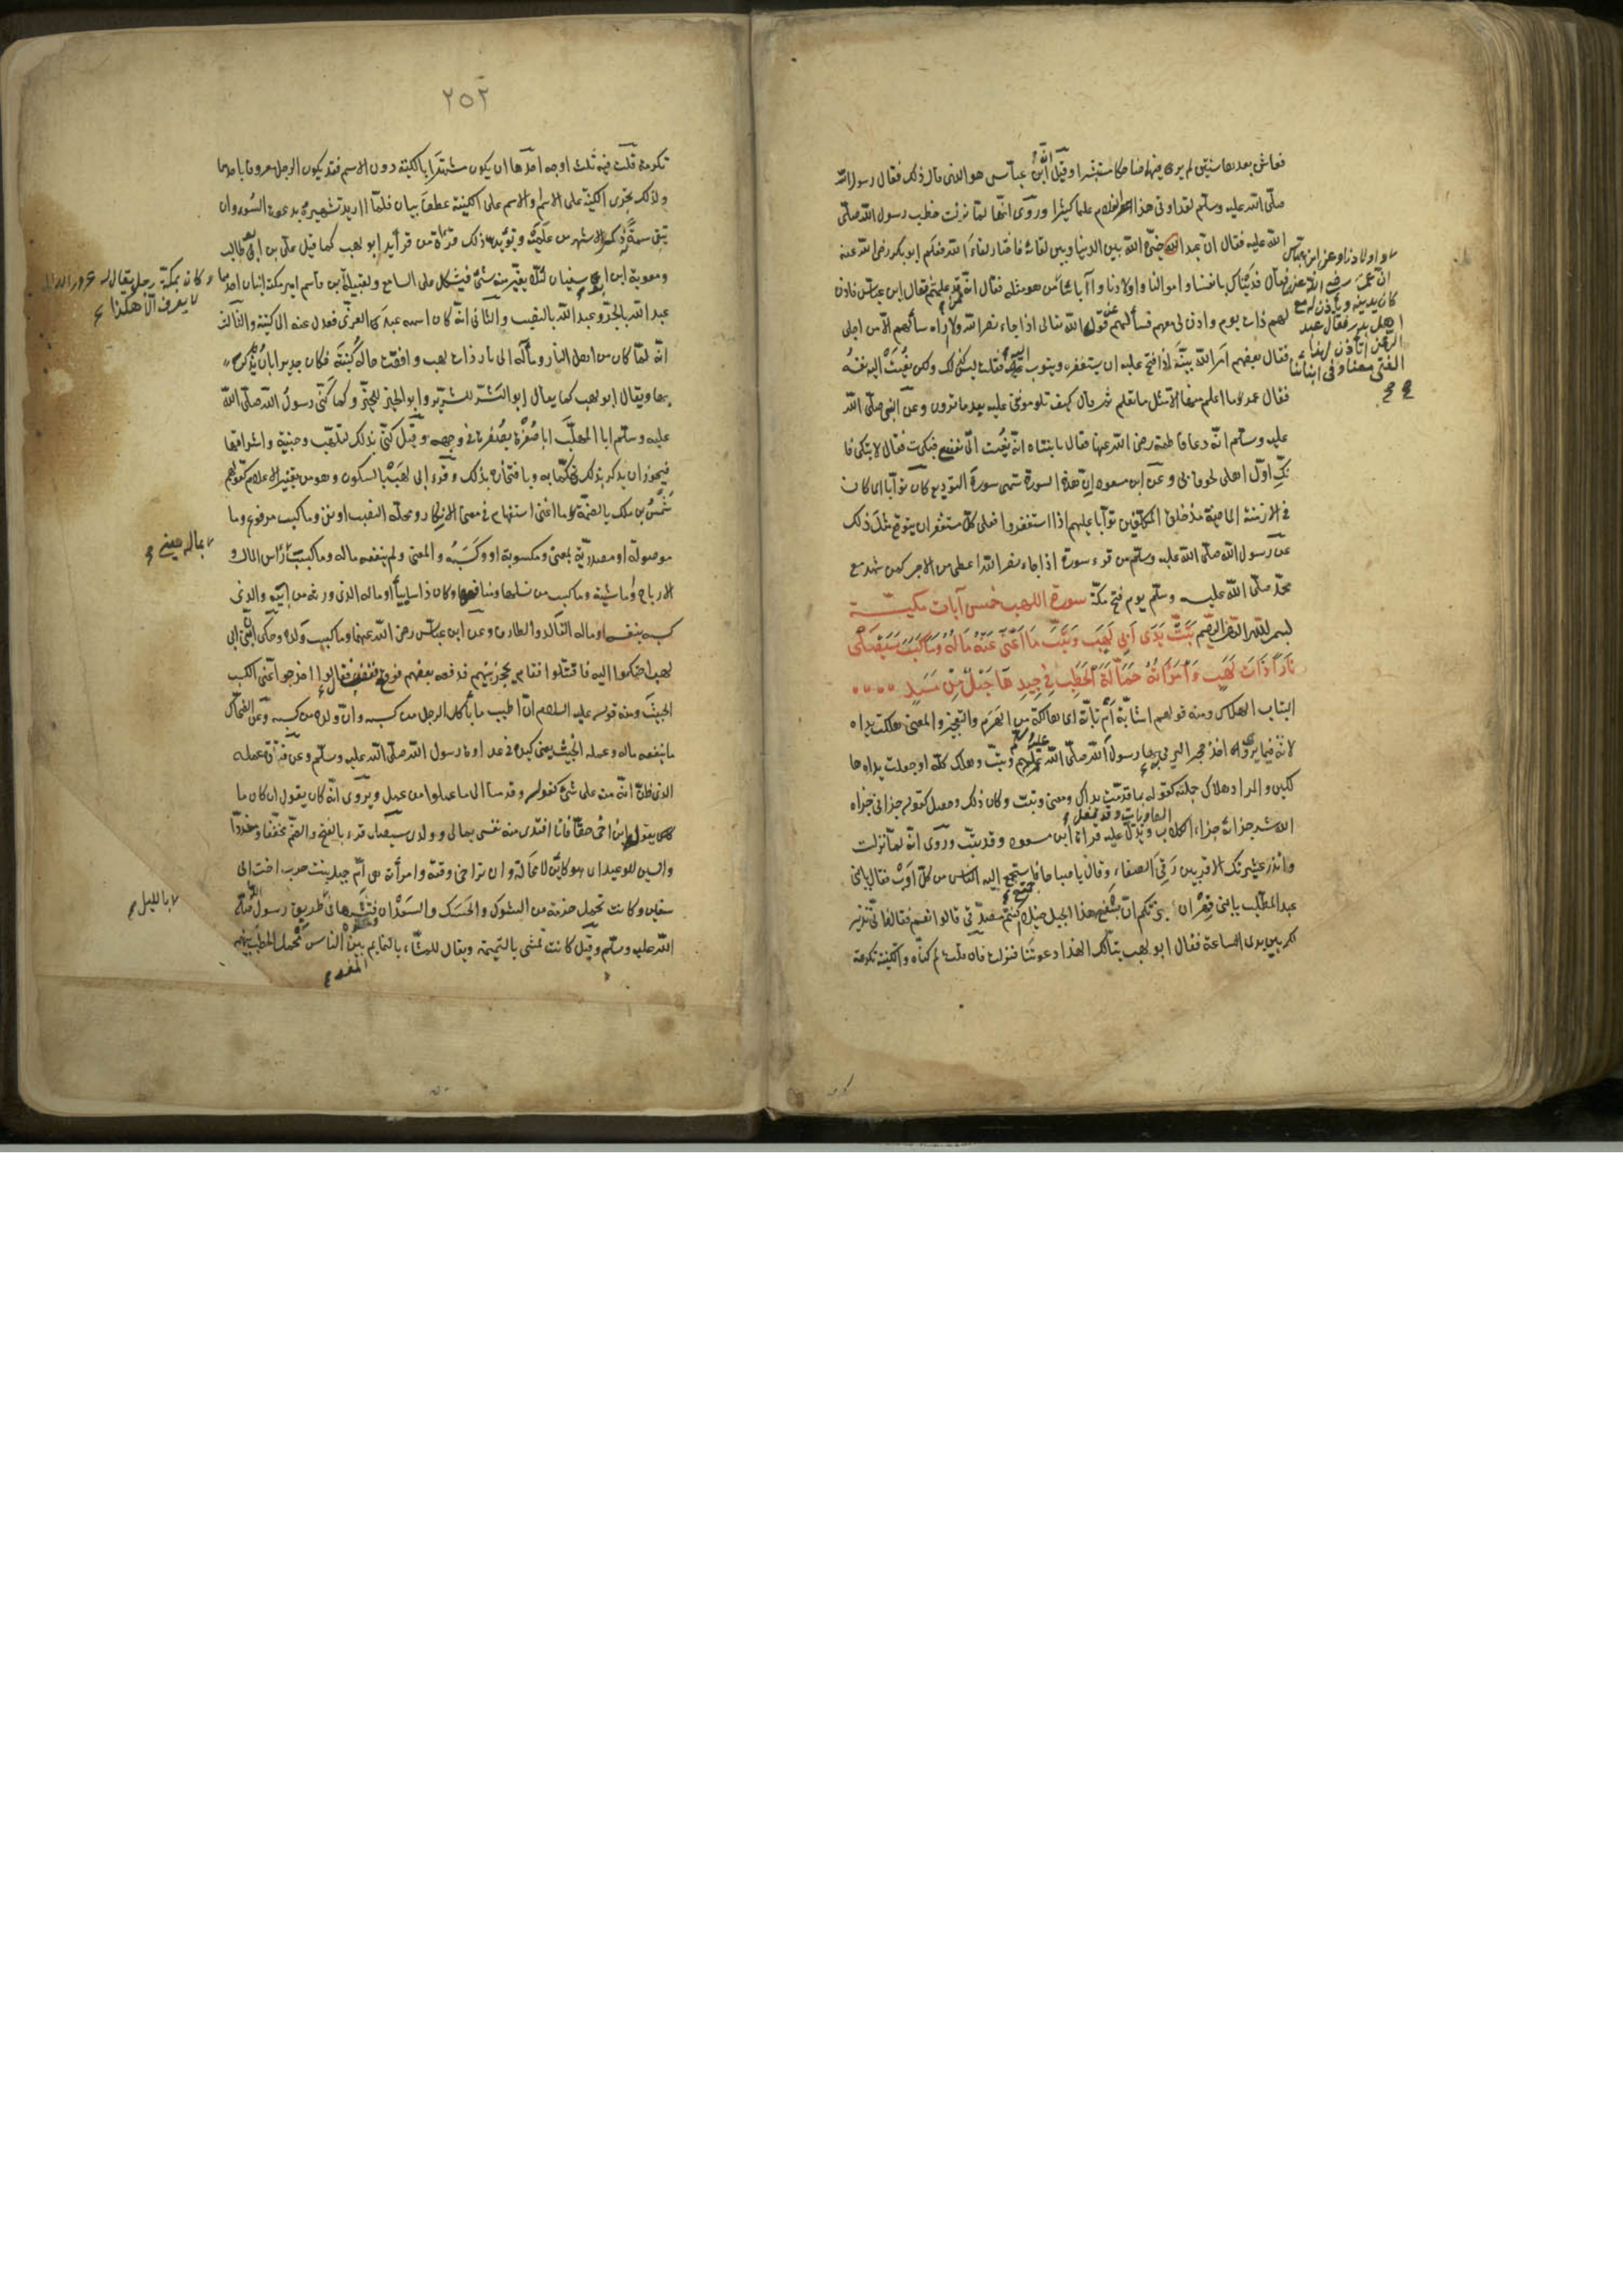 فعاش بعدها سنتين لم ير فيها ضاحكا مستبشرا وقيل ابن عباس هو الذى قال ذلك فقال رسول الله
صلى الله عليه وسلم لقد اوتى هذا الغلام علما كثيرا وروى انها لما نزلت خطب رسول الله صلى
الله عليه فقال ان عبدا خيره الله بين الدنيا وبين لقائه فاختار لقاء الله فعلم ابو بكر رضى الله عنه
فقال فديناك بانفسنا واموالنا واولادنا وآبائنا
وعن ابن عباس
ان عمر رضى الله عنه
كان يدنيه ويأذن له مع
اهل بدر فقال عبد
الرحمن اتأذن لهذا
الفتى معنا وفى ابنائنا
من هو مثله فقال انه ممن قد علمتم قال ابن عباس فاذن
لهم ذات يوم واذن لى معهم فسألهم عن قول الله تعالى اذا جاء نصر الله ولا اراه سألهم الا من اجلى
فقال بعضهم امر الله نبيه اذا فتح عليه ان يستغفره ويتوب اليه فقلت ليس كذلك ولكن نعيت اليه نفسه
فقال عمر ما اعلم منها الا مثل ما تعلم ثم قال كيف تلوموننى عليه بعد ما ترون وعن النبى صلى الله
عليه وسلم انه دعا فاطمة رضى الله عنها فقال يا بنتاه انه نعيت الى نفسى فبكت فقال لا تبكى فا
نك اول اهلى لحوقا بى وعن ابن مسعود ان هذه السورة تسمى سورة التوديع كان توابا اى كان
فى الازمنة الماضية منذ خلق المكلفين توابا عليهم اذا استغفروا فعلى كل مستغفر ان يتوقع مثل ذلك
عن رسول الله صلى الله عليه وسلم من قرء سورة اذا جاء نصر الله اعطى من الاجر كمن شهد مع
محمد صلى الله عليه وسلم يوم فتح مكة سورة اللهب خمس آيات مكية
بسم الله الرحمن الرحيم تبت يدى ابى لهب وتب ما اغنى عنه ماله وما كسب سيصلى
نارا ذات لهب وامرأته حمالة الحطب فى جيدها حبل من مسد
التباب الهلاك ومنه قولهم اشابة ام تابة اى هالكة من الهرم والتعجيز والمعنى هلكت يداه
لانه فيما يروى اخذ حجرا ليرمى بها رسول الله صلى الله عليه وسلم وتب وهلك كله او جعلت يداه ها
لكتين والمراد هلاك جملته كقوله بما قدمت يداك ومعنى وتب وكان ذلك وحصل كقوله جزانى جزاه
الله شر جزائه جزاء الكلاب العاويات وقد فعل ويدل عليه قراءة ابن مسعود وقد تب وروى انه لما نزلت
وانذر عشيرتك الاقربين رقى الصفا وقال يا صباحاه فاستجمع اليه الناس من كل اوب فقال يا بنى
عبد المطلب يا بنى فهر ان اخبرتكم ان بسفح هذا الجبل خيلا اكنتم مصدقى قالوا نعم فقال فانى نذير
لكم بين يدى الساعة فقال ابو لهب تبا لك الهذا دعوتنا فنزلت فان قلت لم كناه والكنية تكرمة
٢٥٢
تكرمة قلت فيه ثلث اوجه احدها ان يكون مشتهرا بالكنية دون الاسم فقد يكون الرجل معروفا باحدهما
ولذلك تجرى الكنية على الاسم والاسم على الكنية عطف بيان فلما اريد تشهيره بدعوة السوء وان
تبقى سمة له ذكر الاشهر من علميه ويؤيد ذلك قراءة من قرأ يدا ابو لهب كما قيل على بن ابو طالب
ومعوية ابن ابو سفيان لئلا يغير منه شئ فيشكل على السامع ولفليتة بن قاسم امير مكة ابنان احدهما
عبد الله بالجر وعبد الله بالنصب
وكان بمكة رجل يقال له عبد الله
لا يعرف الا هكذا
والثانى انه كان اسمه عبد العزى فعدل عنه الى كنيته والثالث
انه لما كان من اهل النار ومآله الى نار ذات لهب وافقت حاله كنيته فكان جديرا بان يذكر
بها ويقال ابو لهب كما يقال ابو الشر للشرير وابو الخير للخير وكما كنى رسول الله صلى الله
عليه وسلم ابا المهلب ابا صفرة بصفرة فى وجهه وقيل كنى بذلك لتلهب وجنتيه واشراقهما
فيجوز ان يذكر بذلك تهكما به وبافتخاره بذلك وقرء ابى لهب بالسكون وهو من تغيير الاعلام كقولهم
شمس بن ملك بالضم ما اغنى استفهام فى معنى الانكار ومحله النصب او نفى وما كسب مرفوع وما
موصولة او مصدرية بمعنى ومكسوبه او وكسبه والمعنى ولم ينفعه ماله وما كسب بماله يعنى رأس المال و
الارباح او ماشيته وما كسب من نسلها ومنافعها وكان ذا سابياء او ماله الذى ورثه من ابيه والذى
كسبه بنفسه او ماله التالد والطارف وعن ابن عباس رضى الله عنهما وما كسب ولده وحكى ان بنى ابى
لهب احتكموا اليه فاقتتلوا فقام يحجز بينهم فدفعه بعضهم فوقع فغضب فقال اخرجوا عنى الكسب
الخبيث ومنه قوله عليه السلام ان اطيب ما يأكل الرجل من كسبه وان ولده من كسبه وعن الضحاك
ما ينفعه ماله وعمله الخبيث يعنى كيده فى عداوة رسول الله صلى الله عليه وسلم وعن قتادة عمله
الذى ظن انه منه على شئ كقوله وقدمنا الى ما عملوا من عمل ويروى انه كان يقول ان كان ما
يقول ابن اخى حقا فانا افتدى منه نفسى بمالى وولدى سيصلى قرء بالفتح والضم مخففا ومشددا
والسين للوعيد اى هو كائن لا محالة وان تراخى وقته وامرأته هى ام جميل بنت حرب اخت ابى
سفيان وكانت تحمل حزمة من الشوك والحسك والسعدان فتنثرها بالليل فى طريق رسول الله صلى
الله عليه وسلم وقيل كانت تمشى بالنميمة ويقال للمشاء بالنمايم المفسد بين الناس يحمل الحطب بينهم